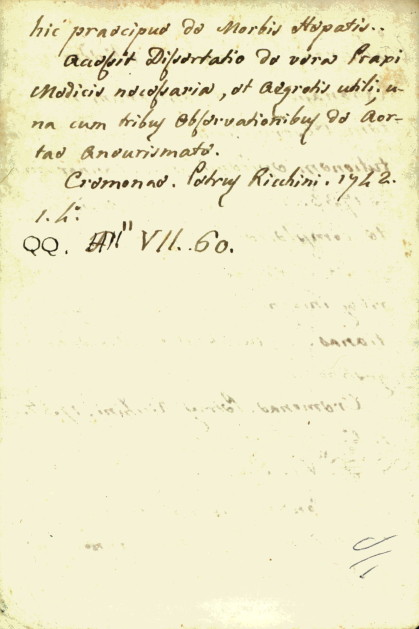 hic praecipue de Morbis Hepatis..
Accessit Dissertatio de vera Praxi
Medicis necessaria, et Aegrotis utili; u-
na cum tribus Observationibus de Aor-
tae Aneurismate.
Cremonae. Petrus Ricchini. 1742.
1. 4.°
QQ. VII. 60.